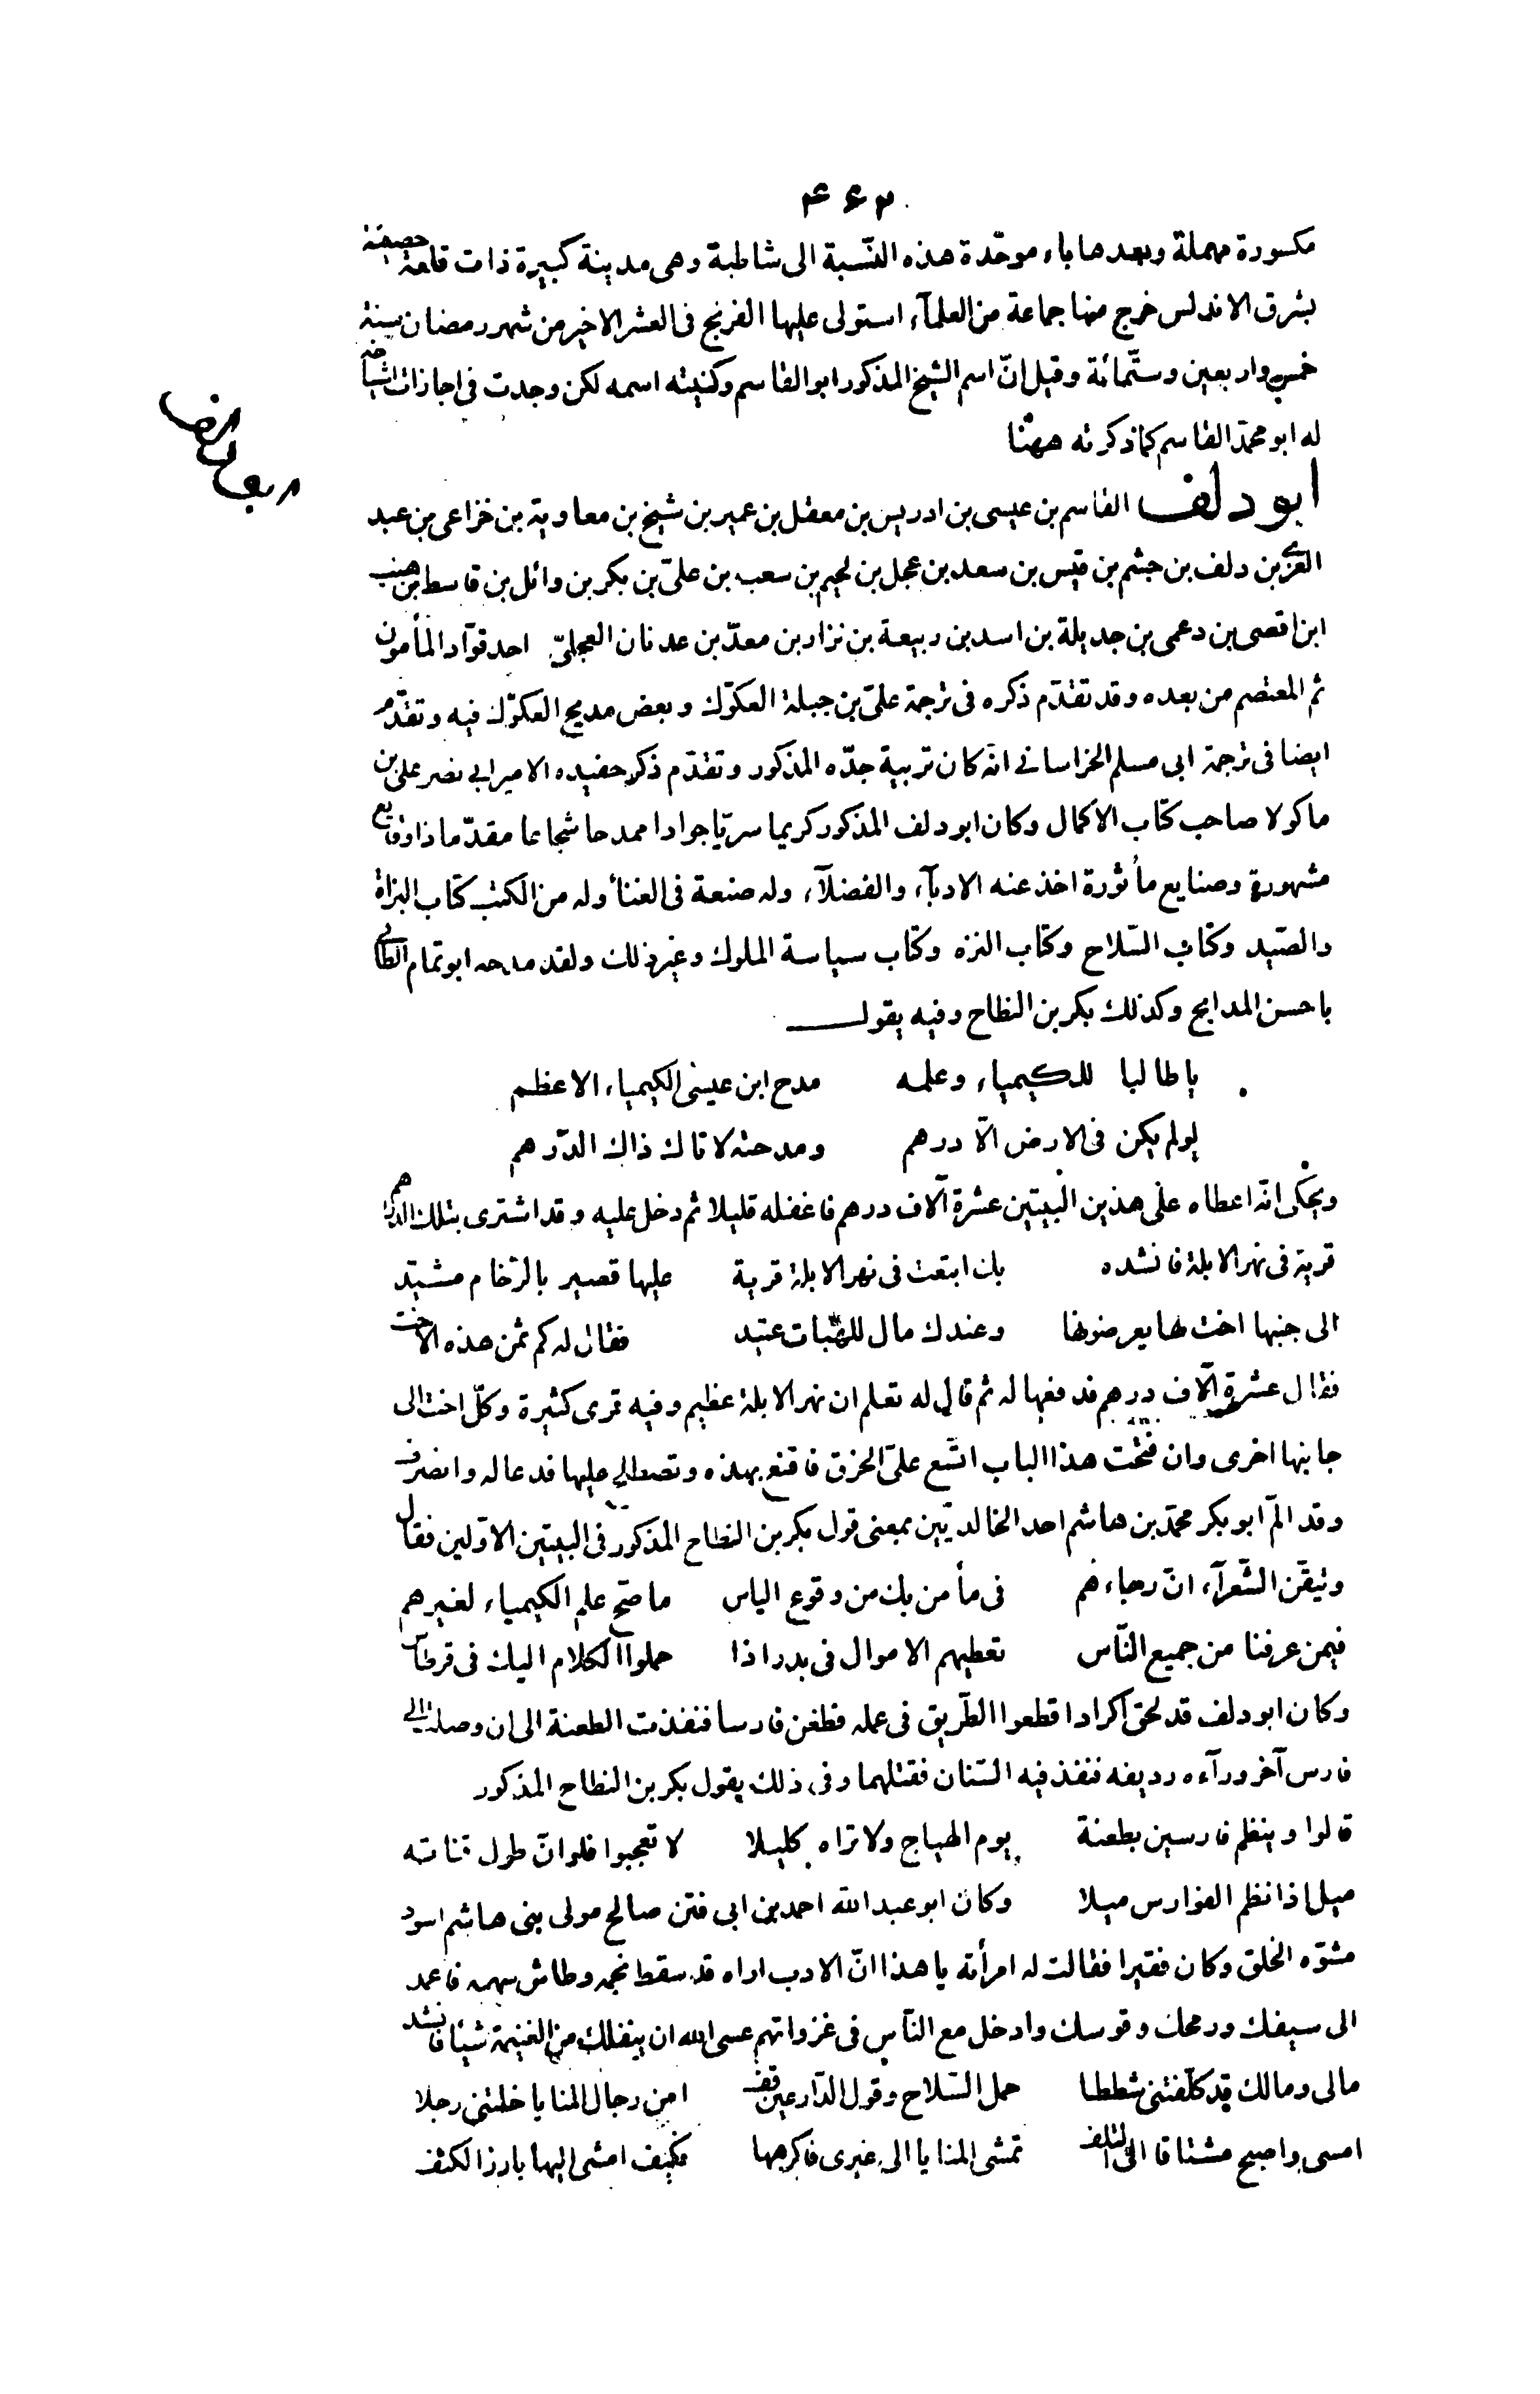 ۴۶۲
مكسورة مهملة وبعدها باء موحّدة هذه النّسبة الى شاطبة وهى مدينة كبيرة ذات قلعة حصينة
بشرق الاندلس خرج منها جماعة من العلمآء استولى عليها الفرنج فى العشر الاخير من شهر رمضان سنة
خمس واربعين وستّمائة وقيل انّ اسم الشيخ المذكور ابو القاسم وكنيته اسمه لكن وجدت فى اجازات اشياخه
له ابو محمّد القاسم كما ذكرته ههنا
ابو دلف القاسم بن عيسى بن ادريس بن معقل بن عمير بن شيخ بن معاوية بن خزاعى بن عبد
العزى بن دلف بن جشم بن قيس بن سعد بن عجل بن لجيم بن سعب بن علىّ بن بكر بن وائل بن قاسط بن هنب
ابن افصى بن دعمى بن جديلة بن اسد بن ربيعة بن نزار بن معدّ بن عدنان العجلىّ احد قوّاد المأمون
ثم المعتصم من بعده وقد تقدّم ذكره فى ترجمة علىّ بن جبلة العكوّك وبعض مديح العكوّك فيه وتقدّم
ايضا فى ترجمة ابى مسلم الخراسانى انه كان تربية جدّه المذكور وتقدّم ذكر حفيده الامير ابى نصر على بن
ماكولا صاحب كتاب الاكمال وكان ابو دلف المذكور كريما سريّا جوادا ممدحا شجاعا مقدّما ذا وقايع
مشهورة وصنايع مأثورة اخذ عنه الادبآء والفضلآء وله صنعة فى الغنأ وله من الكتب كتاب البزاة
والصيد وكتاب السّلاح وكتاب النزه وكتاب سياسة الملوك وغير ذلك ولقد مدحه ابو تمام الطائى
باحسن المدايح وكذلك بكر بن النطاح وفيه يقول
ياطالبا للكيمياء وعلمه مدح ابن عيسى الكيمياء الاعظم
لولم يكن فى الارض الّا درهم ومدحته لاتاك ذاك الدّرهم
ويحكى انّه اعطاه على هذين البيتين عشرة آلاف درهم فاغفله قليلا ثم دخل عليه وقد اشترى بتلك الدراهم
قرية فى نهر الابلة فانشده بك ابتعت فى نهر الابلة قرية عليها قصير بالرّخام مشيّد
الى جنبها اخت لها يعرضونها وعندك مال للهبات عتيد فقال له كم ثمن هذه الاخت
فقال عشرة آلاف درهم فدفعها له ثم قال له تعلم ان نهر الابلة عظيم وفيه قرى كثيرة وكلّ اخت الى
جانبها اخرى وان فتحت هذا الباب اتّسع علىّ الخرق فاقنع بهذه وتصالى عليها فدعا له وانصرف
وقد المّ ابو بكر محمّد بن هاشم احد الخالديّين بمعنى قول بكر بن النطاح المذكور فى البيتين الاوّلين فقال
وتيقّن الشّعرآء انّ رجاءهم فى مأمن بك من وقوع الياس ما صحّ علم الكيمياء لغيرهم
فيمن عرفنا من جميع النّاس تعطيهم الاموال فى بدر اذا حملوا الكلام اليك فى قرطاس
وكان ابو دلف قد لحق اكرادا قطعوا الطّريق فى عمله فطعن فارسا فنفذت الطعنة الى ان وصلت الى
فارس آخر ورآءه رديفه فنفذ فيه السّنان فقتلهما وفى ذلك يقول بكر بن النطاح المذكور
قالوا وينظم فارسين بطعنة يوم الهياج ولا تراه كليلا لا تعجبوا فلو انّ طول قناته
ميل اذا نظم الفوارس ميلا وكان ابو عبد الله احمد بن ابى فتن صالح مولى بنى هاشم اسود
مشوّه الخلق وكان فقيرا فقالت له امرأته يا هذا انّ الادب اراه قد سقط نجمه وطاش سهمه فاعمد
الى سيفك ورمحك وقوسك وادخل مع النّاس فى غزواتهم عسى الله ان ينفلك من الغنيمة شيئا فانشد
مالى ومالك قد كلّفتنى شططا حمل السّلاح وقول الدّارعين قف امن رجال المنايا خلتنى رجلا
امسى واصبح مشتاقا الى التلف تمشى المنايا الى غيرى فاكرهها فكيف امشى اليها بارز الكتف